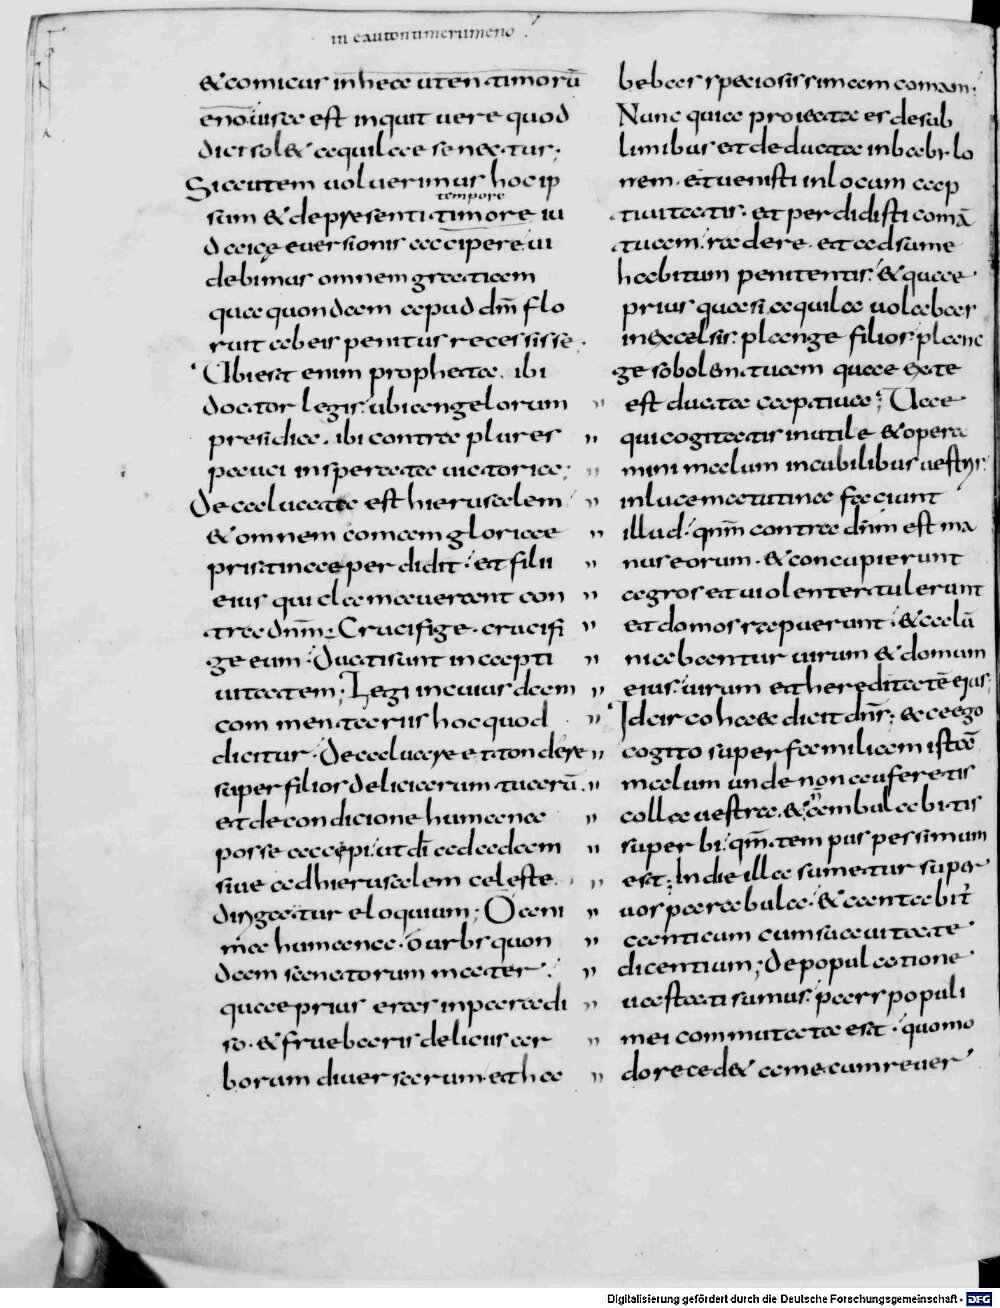 in eautontimerumeno
& comicus in heautentimorū
enoiusa est inquit uere quod
dici sol& aquilae senectur;
Si autem uoluerimus hoc ip
tempore
sum & depraesenti timore iu
daicę euersionis accipere ui
debimus omnem gratiam
quae quondam apud dm̄ flo
ruit ab eis penitus recessisse;
Ubi est enim propheta. ibi
doctor legis ubi angelorum
presidia. ibi contra plures
pauci insperata uictoria;
Decaluata est hierusalem
& omnem comam gloriae
pristinae perdidit. et filii
eius qui clamauerant con
tra dnm̄; Crucifige. crucifi
ge eum. Ducti sunt in capti
uitatem; Legi incuiusdam
commentariis hoc quod
dicitur. Decaluare et tondere
super filios deliciarum tuarū.
et de condicione humana
posse accipi. ut di ad adam
siue ad hierusalem caeleste
dirigatur eloquium; O ani
ma humana. o urbs quon
dam sanctorum mater.
quae prius eras in paradi
so. & fruebaris deliciis ar
borum diuersarum. et ha
bebas speciosissimam comam.
Nunc quia proiecta es de sub
limibus et deducta in babi lo
nem. et uenisti in locum cap
tiuitatis. et perdidisti comā
tuam. radere. et adsume
habitum penitentis. & quae
prius quasi aquila uolabas
in excelsis. plange filios. plan
ge sobolem tuam quae ex te
est ducta captiua; Uae
qui cogitatis inutile & opera
mini malum in cubilibus uestris.
in luce matutina faciunt
illud. qnm̄ contra dnm̄ est ma
nus eorum. & concupierunt
agros et uiolenter tulerunt
et domos rapuerunt. & calū
niabantur uirum & domum
eius. uirum et hereditatē eius;
Idcirco haec dicit dns̄; ecce ego
cogito super familiam istā
malum unde non auferetis
colla uestra. & non ambulabitis
superbi. qm̄ tempus pessimum
est; In die illa sumetur super
uos parabola. & cantabit̄
canticum cum suauitate
dicentium; Depopulatione
uastati sumus. pars populi
mei commutata est. quomo
do reced& a me cum reuer
Digitalisierung gefördert durch die Deutsche Forschungsgemeinschaft - DFG